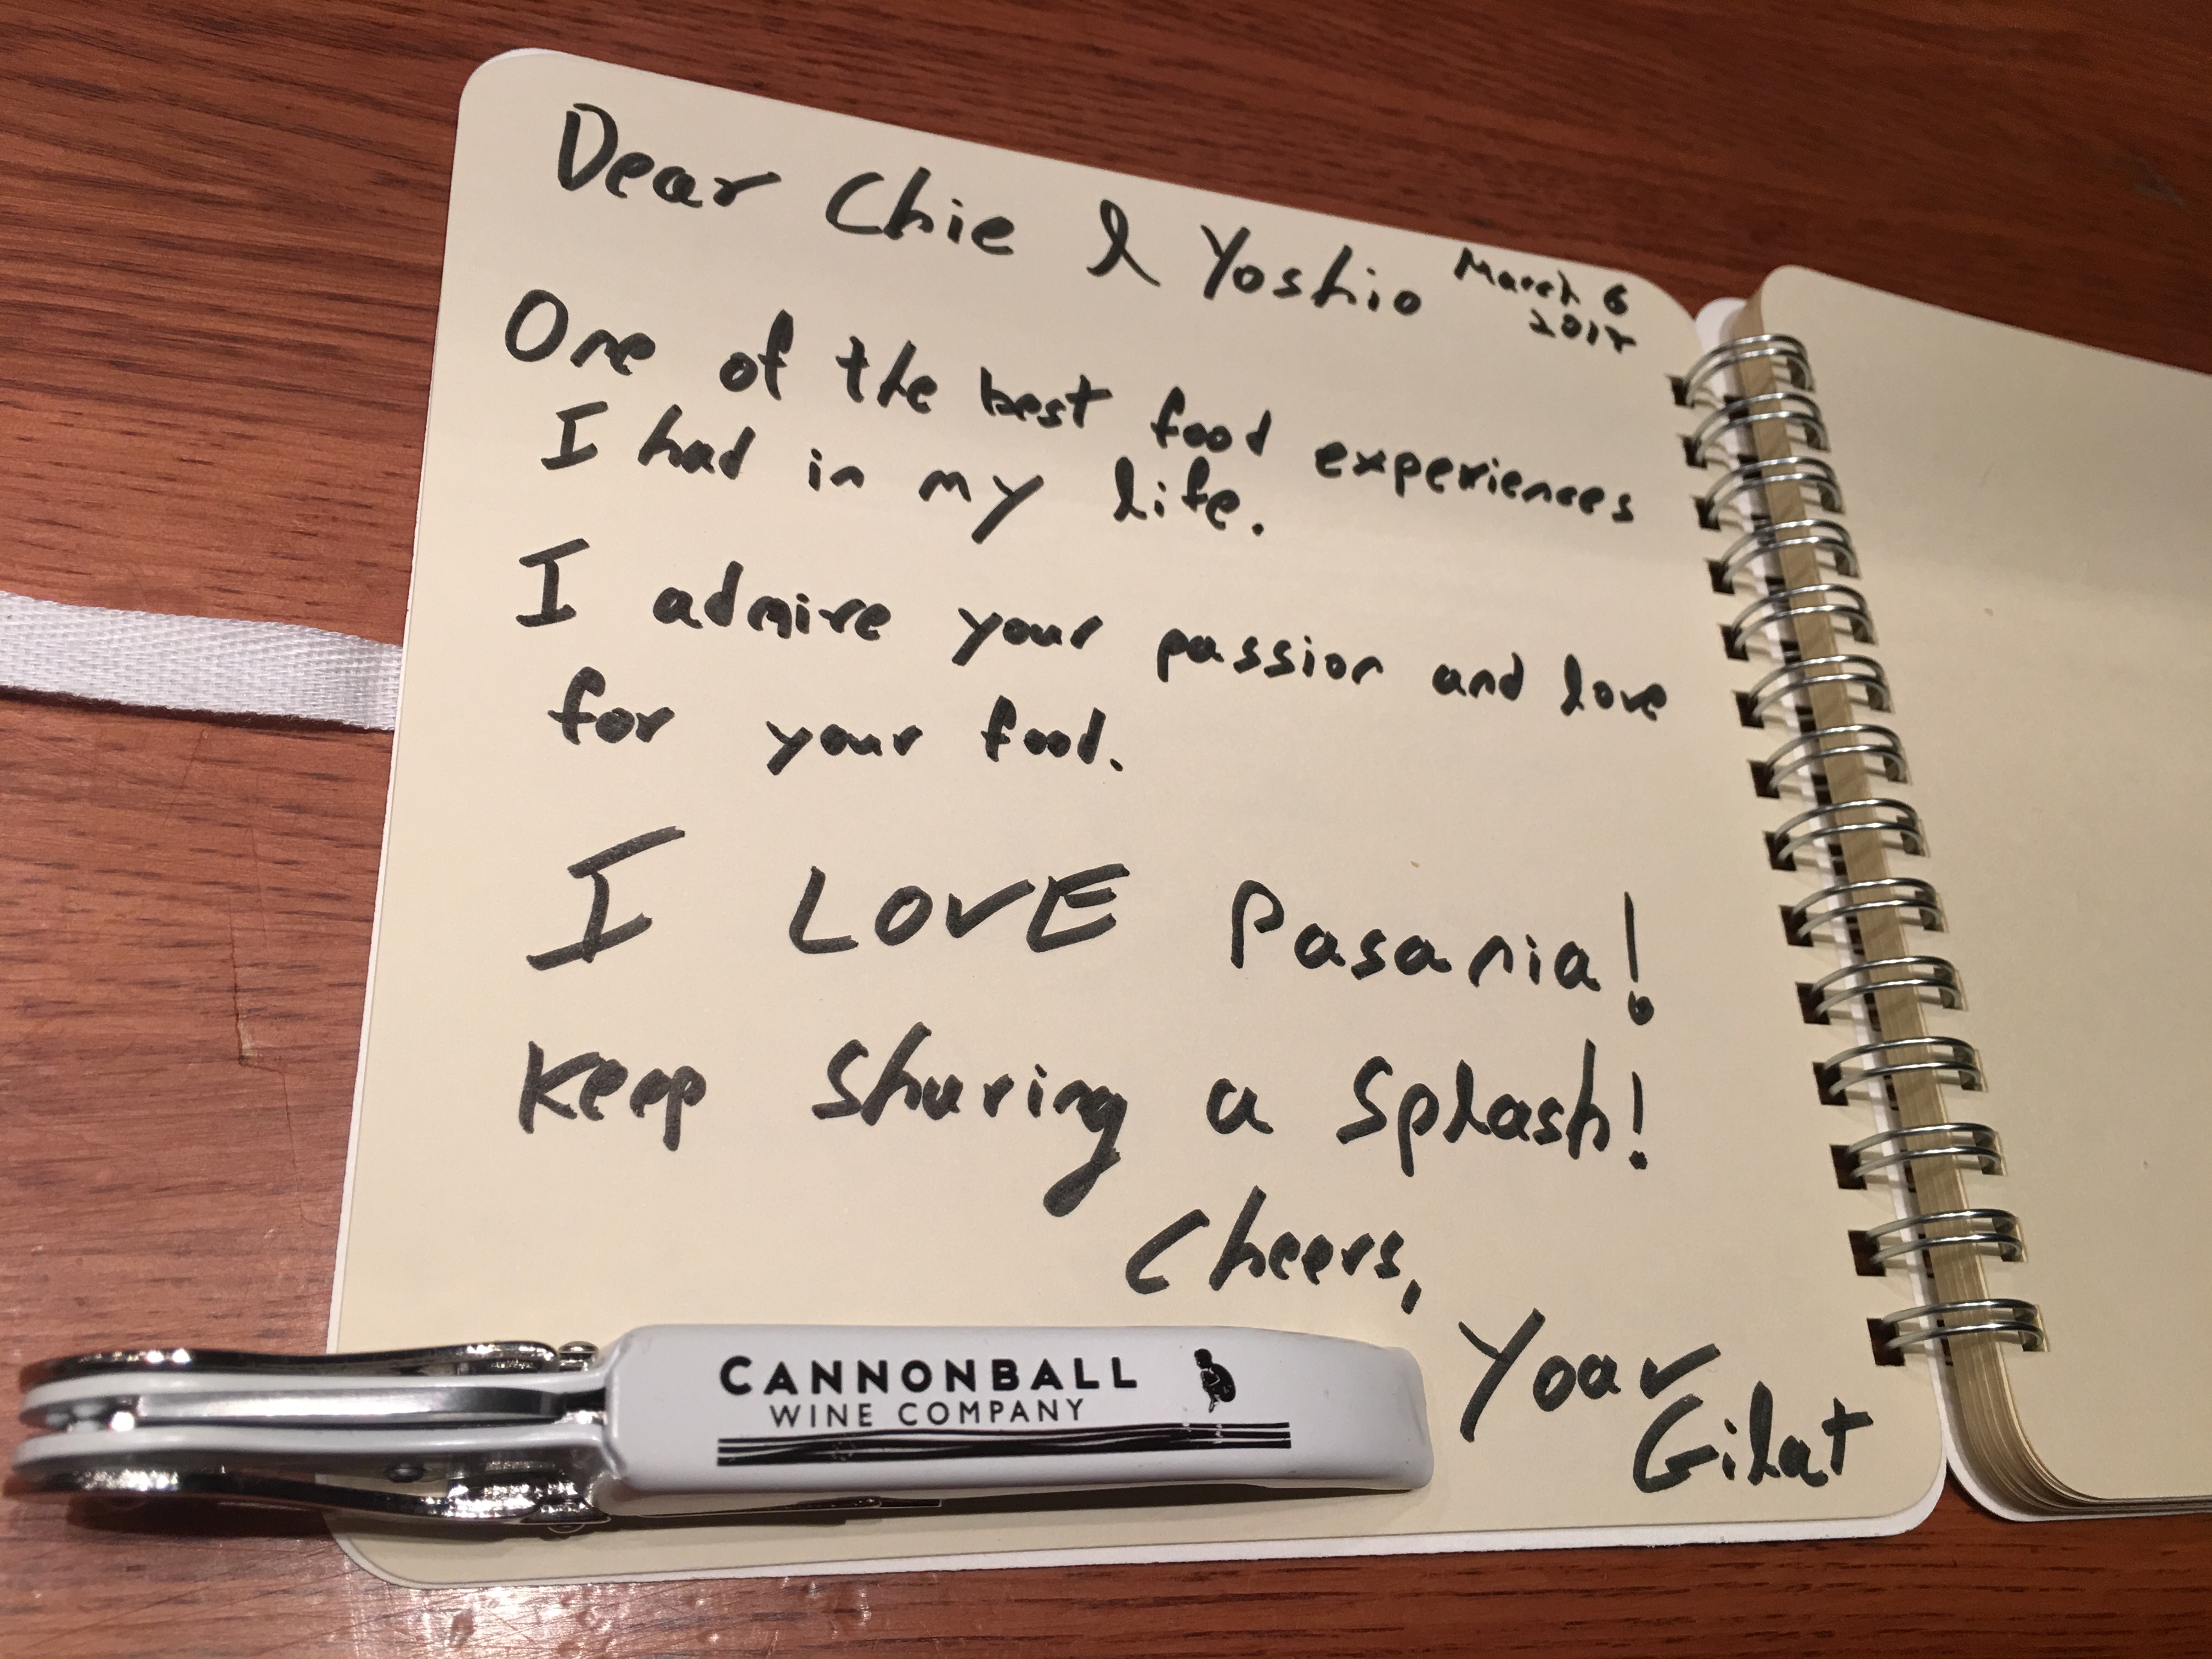 Dear Chie & Yoshio
March 6
2017
One of the best food experiences
I had in my life.
I admire your passion and love
for your food.
I LOVE Pasania!
Keep sharing a splash!
Cheers,
Yoav
Gilat
CANNONBALL
WINE COMPANY